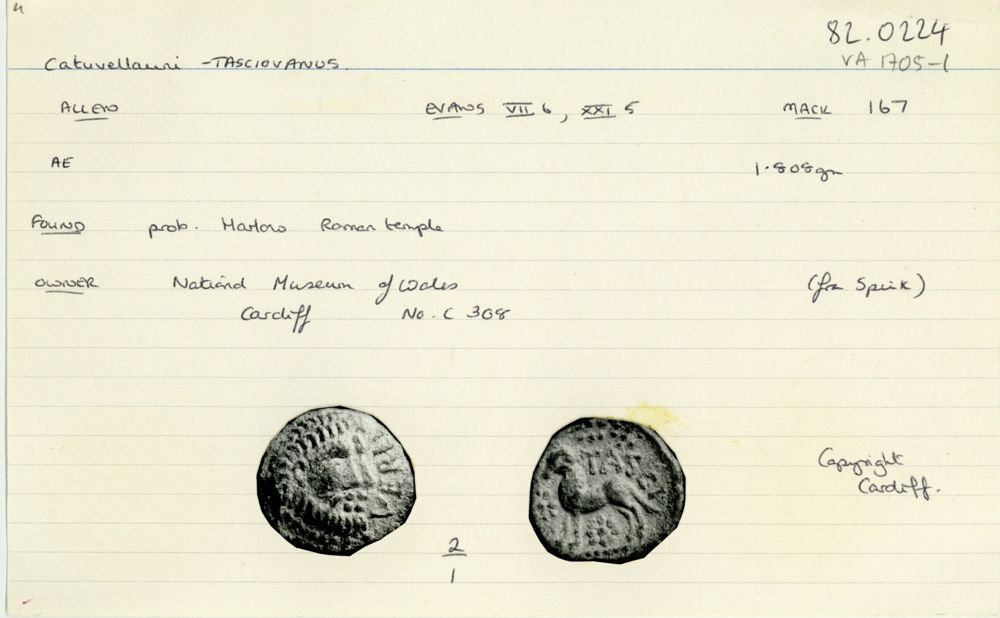 82.0224
Catuvellauni - TASCIOVANUS.
VA 1705-1
ALLEN EVANS VII 6, XXI 5 MACK 167
AE 1.808gm
FOUND prob. Harlow Roman temple
OWNER National Museum of Wales (fr Spink)
Cardiff No. C 308
VERL
TAS
Copyright
Cardiff.
2
1